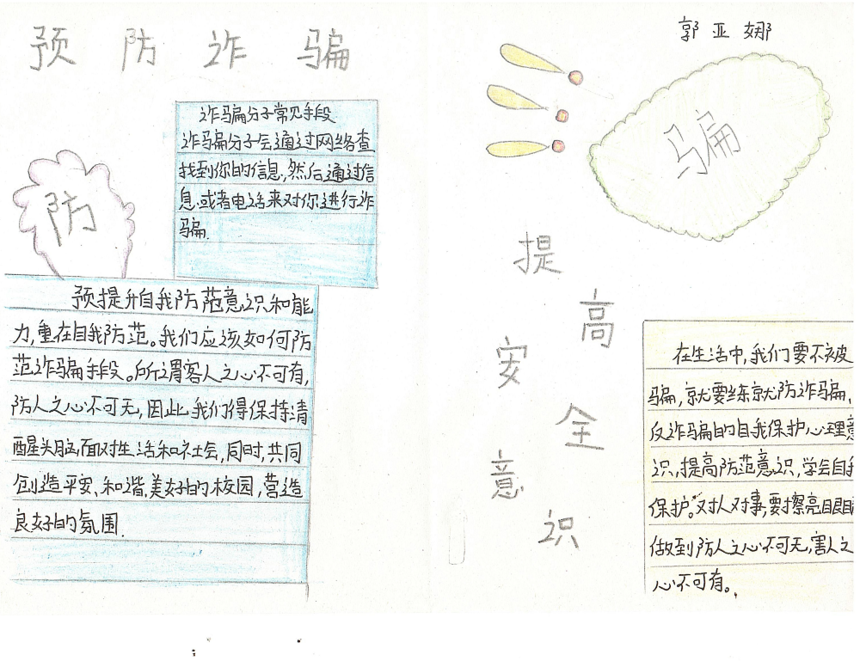 预防诈骗
诈骗分子常见手段
诈骗分子会通过网络查
找到你的信息,然后通过信
息或者电话来对你进行诈
骗.
防
预提升自我防范意识和能
力,重在自我防范。我们应该如何防
范诈骗手段。所谓害人之心不可有,
防人之心不可无,因此我们得保持清
醒头脑,面对生活和社会,同时,共同
创造平安、和谐.美好的校园,营造
良好的氛围.
郭亚娜
骗
提高安全意识
在生活中,我们要不被
骗,就要练就防诈骗、
反诈骗的自我保护心理意
识,提高防范意识,学会自我
保护。对人对事,要擦亮眼睛
做到防人之心不可无,害人之
心不可有。